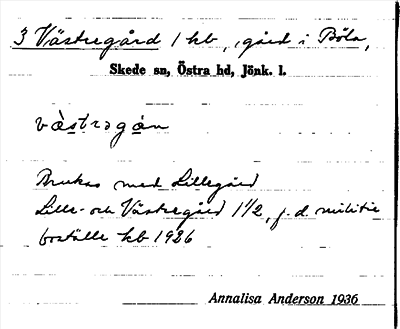 3 Västregård 1 kb, gård i Böla,
Skede sn, Östra hd, Jönk. l.
vàstrəgán
Brukas med Lillegård
Lille- och Västregård 1 1/2, f. d. militie
boställe kb 1926
Annalisa Anderson 1936